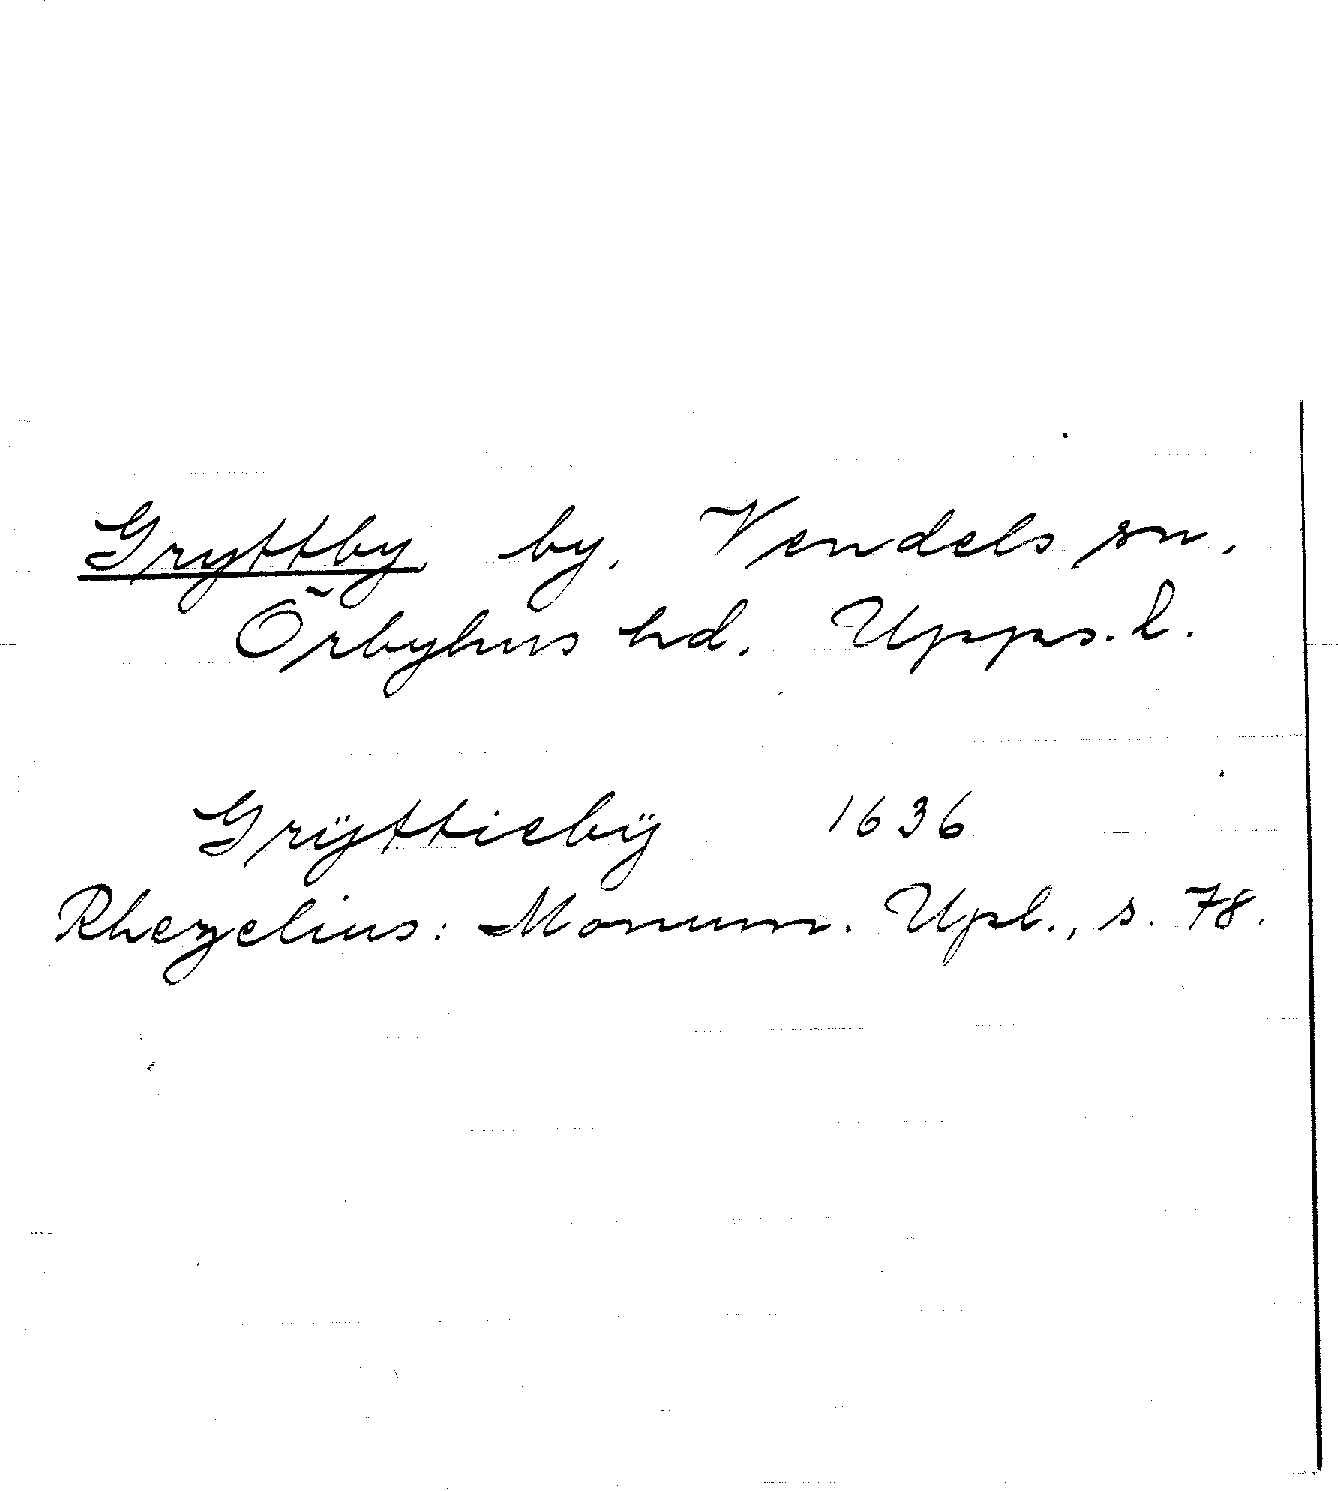 Gryttby by, Vendels sn.
Örbyhus hd. Upps. l.
Grÿttiebÿ 1636
Rhezelius: Monum. Upl., s. 78.